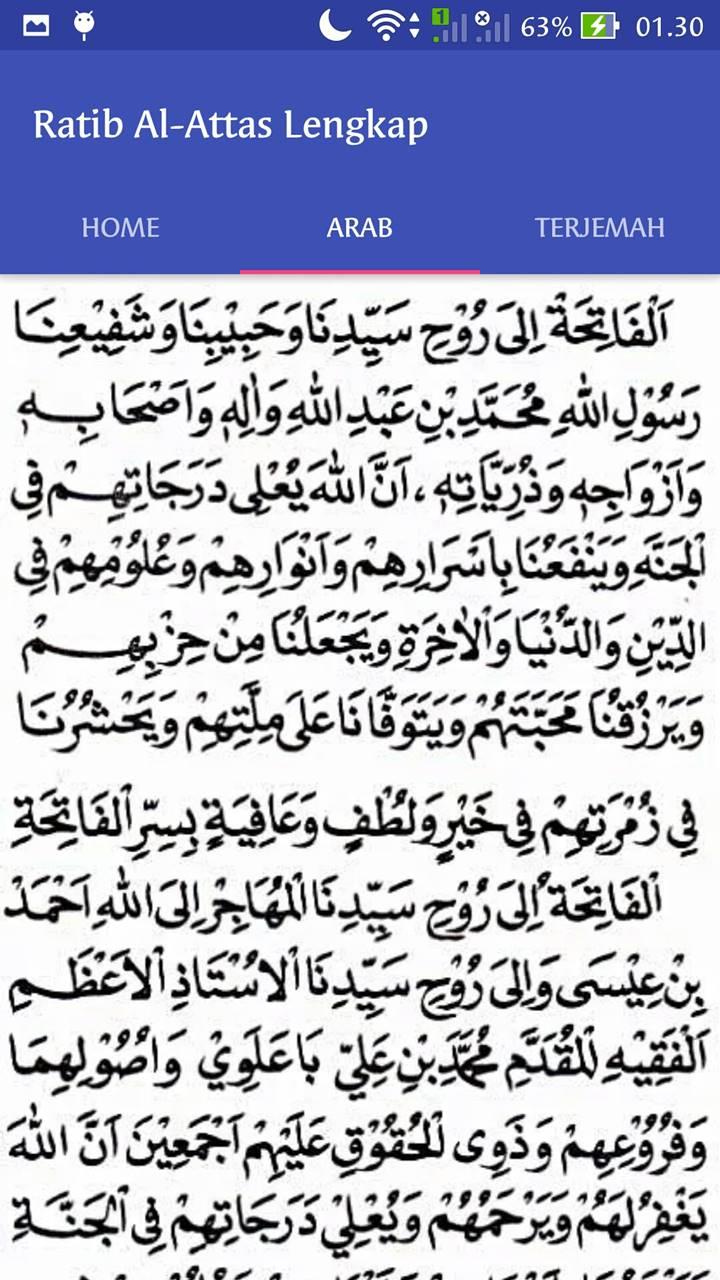 1 63% 01.30
Ratib Al-Attas Lengkap
HOME ARAB TERJEMAH
اَلْفَاتِحَةْ اِلَى رُوْحِ سَيِّدِنَا وَحَبِيْبِنَا وَشَفِيْعِنَا
رَسُوْلِ اللهِ مُحَمَّدِ بْنِ عَبْدِ اللهِ وَاٰلِهِ وَاَصْحَابِهِ
وَاَزْوَاجِهِ وَذُرِّيَّاتِهِ ، اَنَّ اللهَ يُعْلِى دَرَجَاتِهِمْ فِى
الْجَنَّهِ وَيَنْفَعُنَا بِاَسْرَارِهِمْ وَاَنْوَارِهِمْ وَعُلُوْمِهِمْ فِى
الدِّيْنِ وَالدُّنْيَا وَالْاٰخِرَةِ وَيَجْعَلُنَا مِنْ حِزْبِهِمْ
وَيَرْزُقُنَا مَحَبَّتَهُمْ وَيَتَوَفَّانَا عَلَى مِلَّتِهِمْ وَيَحْشُرُنَا
فِي زُمْرَتِهِمْ فِى خَيْرٍ وَلُطْفٍ وَعَافِيَةٍ بِسِرِّ الْفَاتِحَةِ
اَلْفَاتِحَةْ اُلَى رُوْحِ سَيِّدِنَا الْمُهَاجِرْ اِلَى اللهِ اَحْمَدْ
بِنْ عِيْسَى وَاِلَى رُوْحِ سَيِّدِنَا الْاُسْتَاذِ الْاَعْظَمِ
اَلْفَقِيْهِ الْمُقَدَّمِ مُحَمَّدِ بْنِ عَلِيّ بَاعَلَوِيْ وَاُصُوْلِهِمَا
وَفُرُوْعِهِمْ وَذَوِى الْحُقُوْقِ عَلَيْهِمْ اَجْمَعِيْنَ اَنَّ اللهَ
يَغْفِرُ لَهُمْ وَيَرْحَمُهُمْ وَيُعْلِيْ دَرَجَاتِهِمْ فِى الْجَنَّةِ